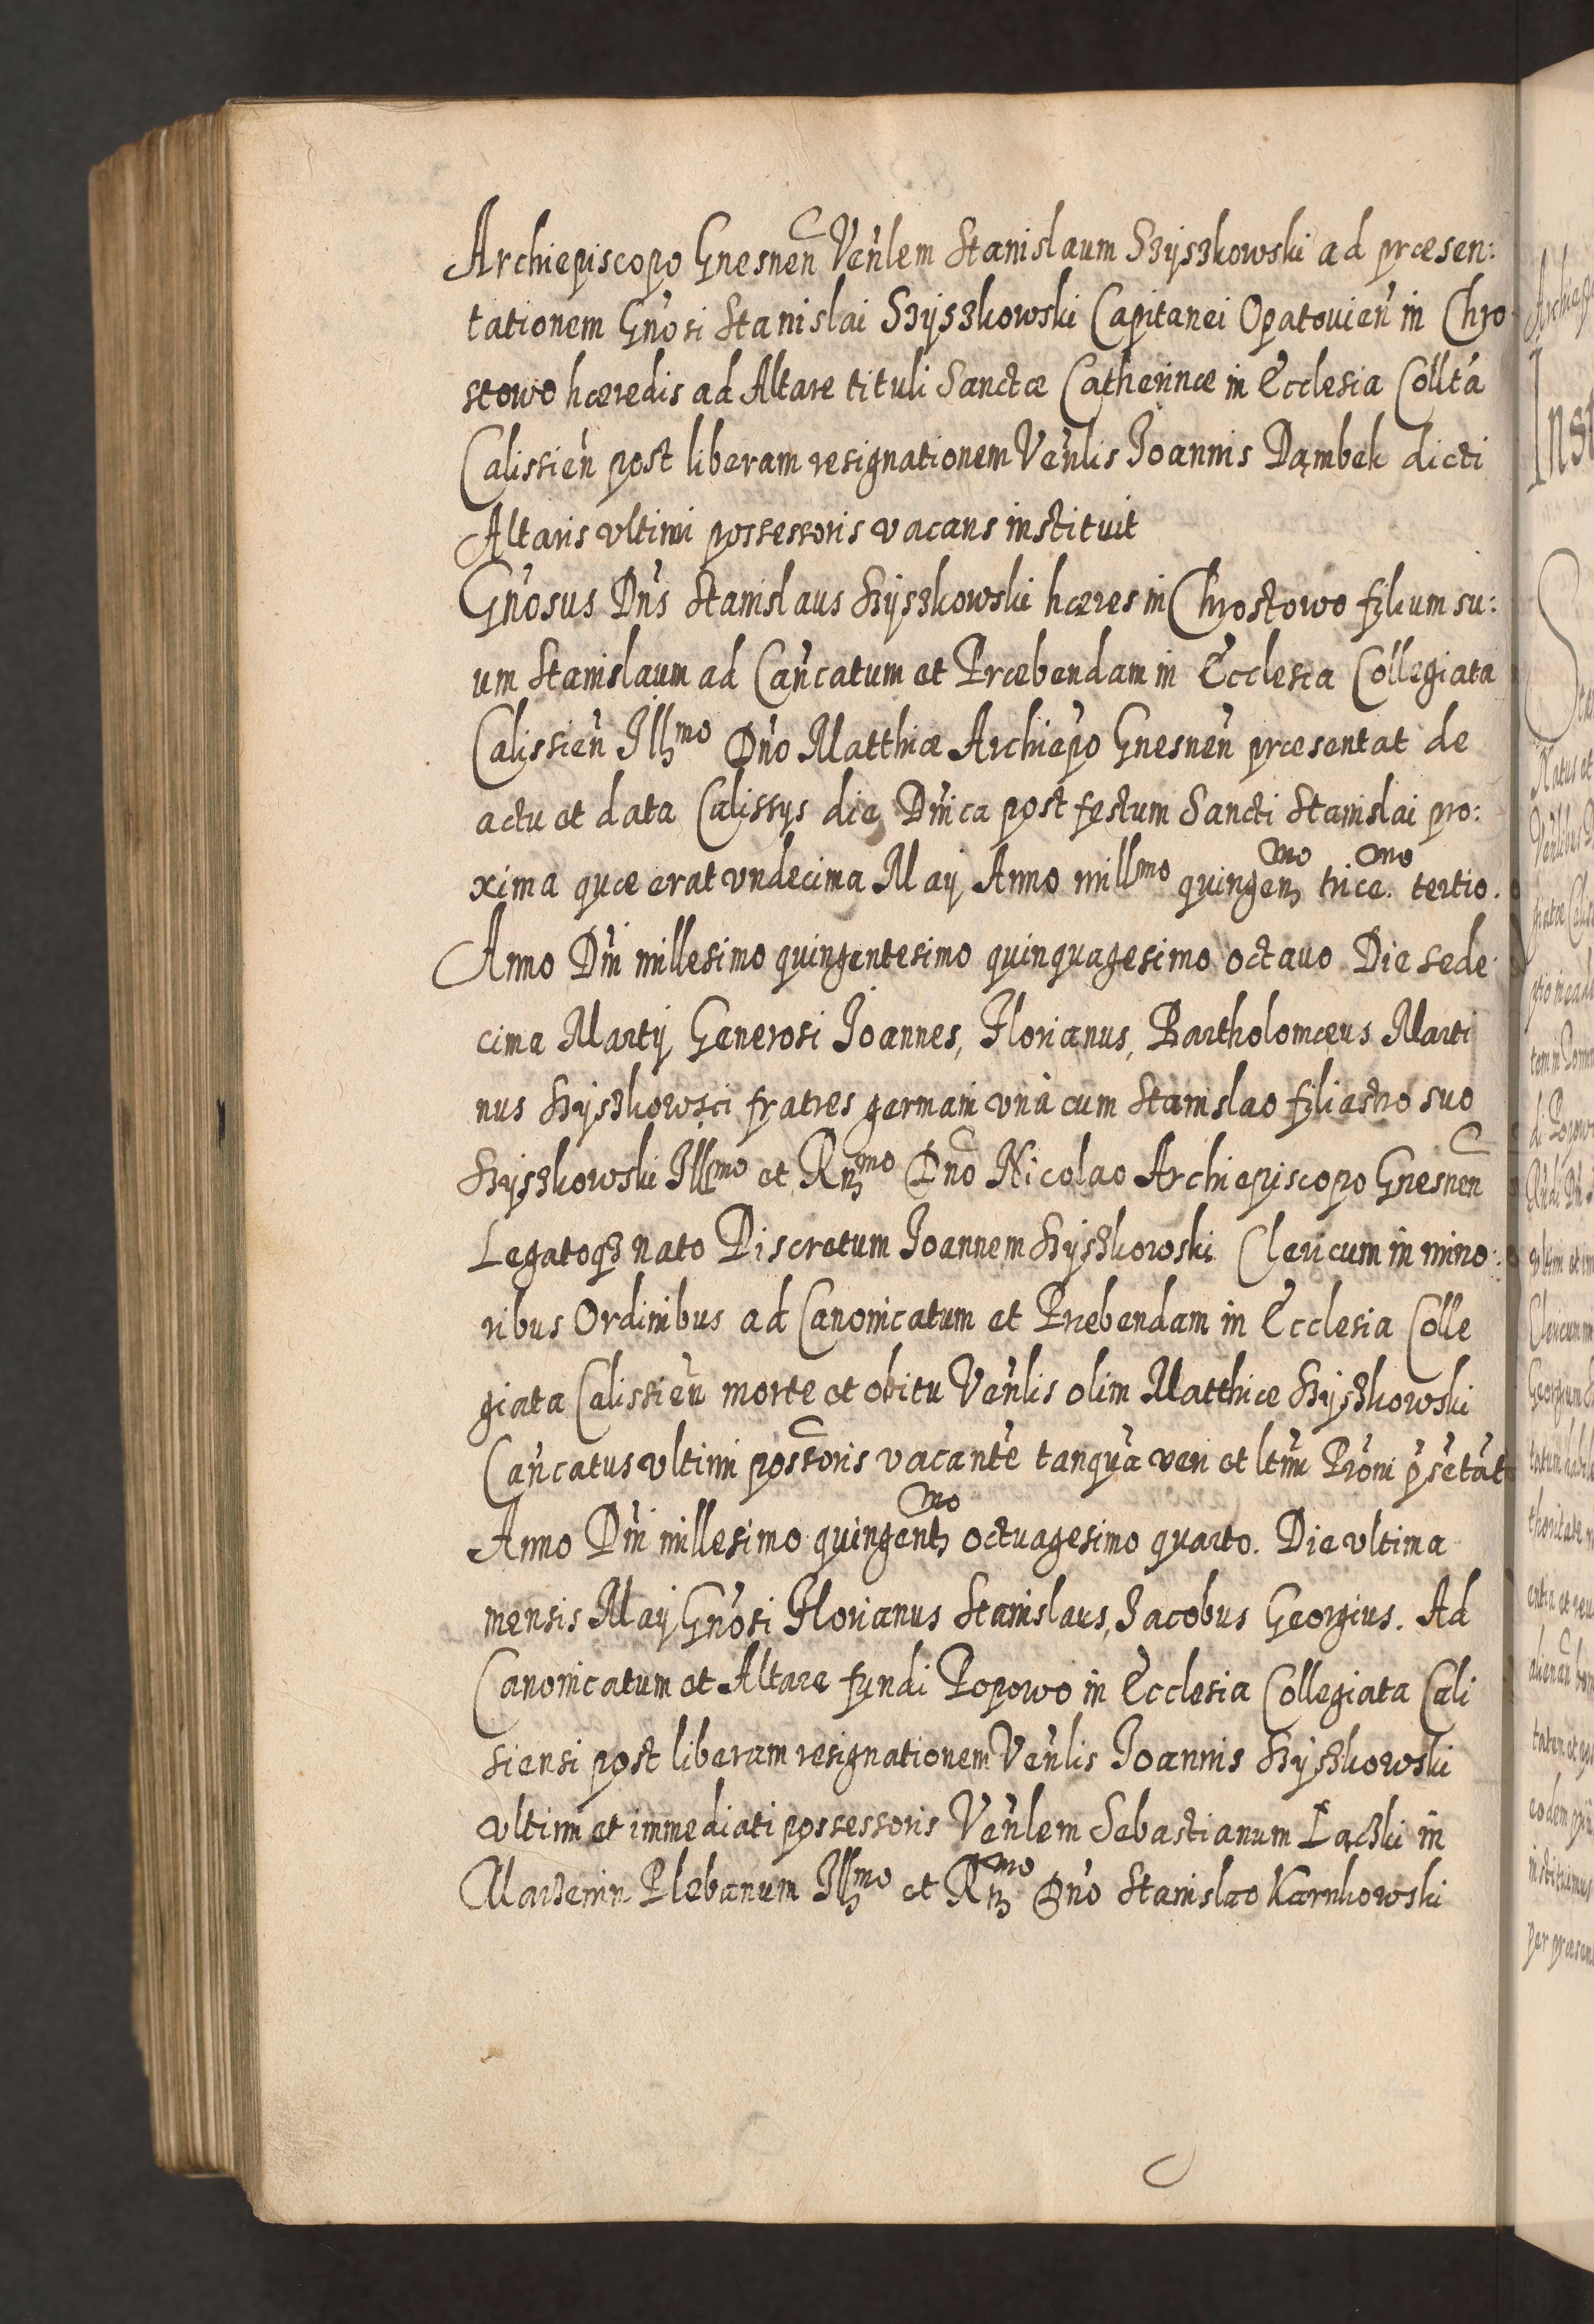 Archiepiscopo Gnesnen̄ Ven̄lem Stanislaum Szÿszkowski ad præsen:
tationem Gn̄osi Stanislai Szÿszkowski Capitanei Opatouien̄ in Chro
stowo hæredis ad Altare tituli Sanctæ Catherinæ in Ecclesia Collta
Calissien̄ post liberam resignationem Ven̄lis Joannis Dąmbek dicti
Altaris vltimi possessoris vacans instituit
Gn̄osus Dn̄s Stanislaus Szÿszkowski hæres in Chrostowo filium su:
um Stanislaum ad Can̄catum et Præbendam in Ecclesia Collegiata
Calissien̄ Illmo Dn̄o Matthiæ Archiepo Gnesnen̄ præsentat de
actu et data Calissÿs die Dn̄ica post festum Sancti Stanislai pro:
xima quæ erat vndecima Maÿ Anno millmo quingenmo tricemo. tertio.
Anno Dn̄i millesimo quingentesimo quinquagesimo octauo Die sede
cima Martÿ Generosi Joannes, Florianus, Bartholomæus Marti
nus Szÿszkowsci fratres germani vnà cum Stanislao filiastro suo
Szÿszkowski Illmo et Rmo Dn̄o Nicolao Archiepiscopo Gnesnen̄
Legatoqȝ nato Discretum Joannem Szÿszkowski Clericum in mino:
ribus Ordinibus ad Canonicatum et Præbendam in Ecclesia Colle
giata Calissien̄ morte et obitu Ven̄lis olim Matthiæ Szÿszkowski
Can̄catus vltimi possoris vacante tanquā veri et ltimi Proni psētāt
Anno Dn̄i millesimo quingentmo octuagesimo quarto. Die vltima
mensis Maÿ Gn̄osi Florianus Stanislaus, Jacobus Georgius. Ad
Canonicatum et Altare fundi Popowo in Ecclesia Collegiata Cali
siensi post liberam resignationem Ven̄lis Joannis Szÿszkowski
vltimi et immediati possessoris Ven̄lem Sebastianum Łączki in
Marzenin Plebanum Illmo et Rmo Dn̄o Stanislao Karnkowski